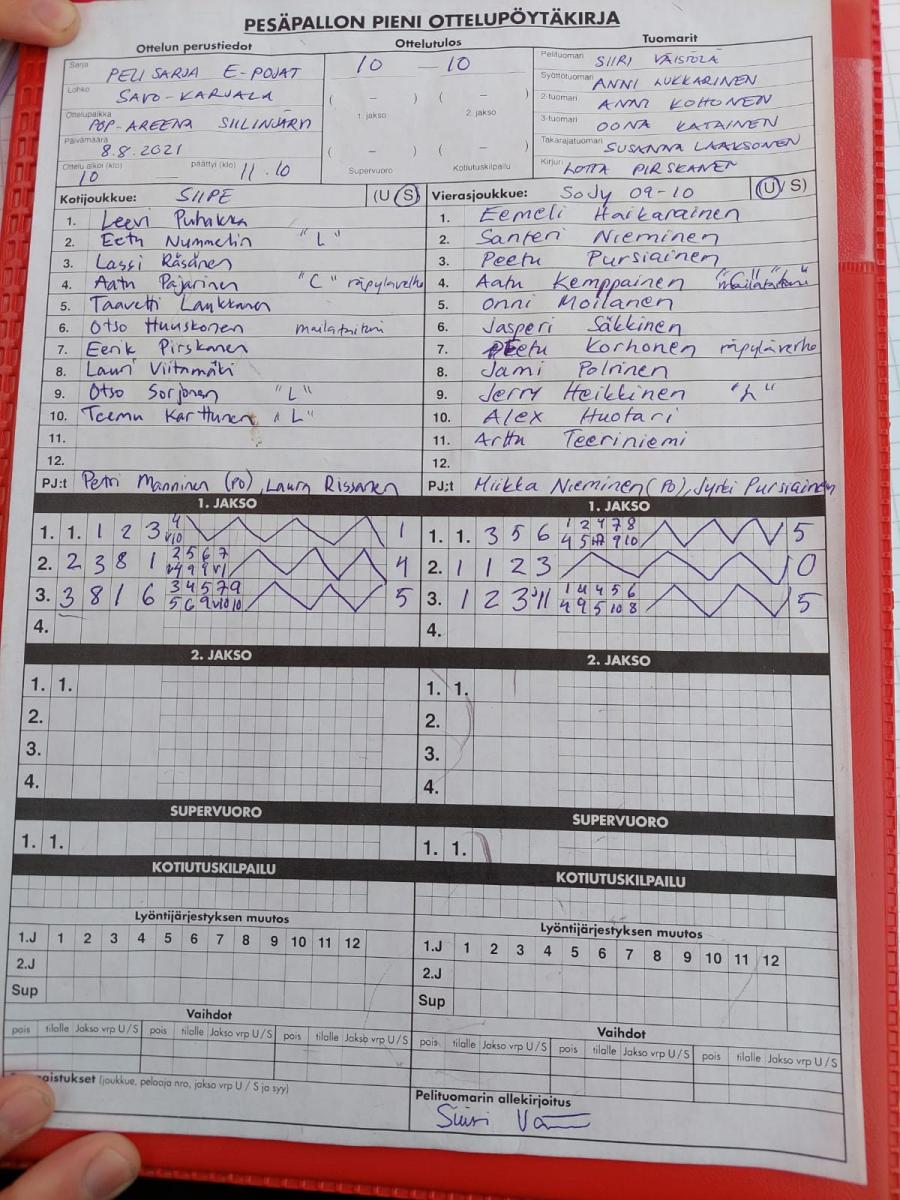 PESÄPALLON PIENI OTTELUPÖYTÄKIRJA
Ottelun perustiedot
Sarja PELISARJA E-POJAT
Lohko SAVO-KARJALA
Ottelupaikka POP-AREENA SIILINJÄRVI
Päivämäärä 8.8.2021
Ottelu alkoi (klo) 10 — päättyi (klo) 11.10
Ottelutulos
10 — 10
( – ) ( – )
1. jakso 2. jakso
( – ) ( – )
Supervuoro Kotiutuskilpailu
Tuomarit
Pelituomari SIIRI VÄISTÖLÄ
Syöttötuomari ANNI LUKKARINEN
2-tuomari ANNI KOHONEN
3-tuomari OONA KATAINEN
Takarajatuomari SUSANNA LAAKSONEN
Kirjuri LOTTA PIRSKANEN
Kotijoukkue: SIIPE (U/S)
1. Leevi Puhakka
2. Eetu Nummelin "L"
3. Lassi Räsänen
4. Aatu Pajarinen "C" räpyläverho
5. Taavetti Laukkanen
6. Otso Huuskonen mailataituri
7. Eerik Pirskanen
8. Lauri Viitamäki
9. Otso Sorjonen "L"
10. Teemu Karttunen "L"
11.
12.
PJ:t Petri Manninen (PO), Laura Rissanen
Vierasjoukkue: SoJy 09-10 (U/S)
1. Eemeli Haikarainen
2. Santeri Nieminen
3. Peetu Pursiainen
4. Aatu Kemppainen "C" "mailataituri"
5. Onni Moilanen
6. Jasperi Säkkinen
7. Peetu Korhonen räpyläverho
8. Jami Polvinen
9. Jerry Heikkinen "L"
10. Alex Huotari
11. Arttu Teeriniemi
12.
PJ:t Miikka Nieminen (PO), Jyrki Pursiainen
1. JAKSO
1. 1. 1 2 3 4 1
2. 2 3 8 1 2 5 6 7 4
3. 3 8 1 6 3 4 5 7 9 5
4.
2. JAKSO
1. 1.
2.
3.
4.
SUPERVUORO
1. 1.
KOTIUTUSKILPAILU
Lyöntijärjestyksen muutos
1.J 1 2 3 4 5 6 7 8 9 10 11 12
2.J
Sup
Vaihdot
pois tilalle Jakso vrp U/S pois tilalle Jakso vrp U/S pois tilalle Jakso vrp U/S
1. JAKSO
1. 1. 3 5 6 1 2 4 7 8 5
2. 1 1 2 3 0
3. 1 2 3 11 1 4 4 5 6 4 9 5 10 8 5
4.
2. JAKSO
1. 1.
2.
3.
4.
SUPERVUORO
1. 1.
KOTIUTUSKILPAILU
Lyöntijärjestyksen muutos
1.J 1 2 3 4 5 6 7 8 9 10 11 12
2.J
Sup
Vaihdot
pois tilalle Jakso vrp U/S pois tilalle Jakso vrp U/S pois tilalle Jakso vrp U/S
(joukkue, pelaaja nro, jakso vrp U / S ja syy)
Pelituomarin allekirjoitus
Siiri